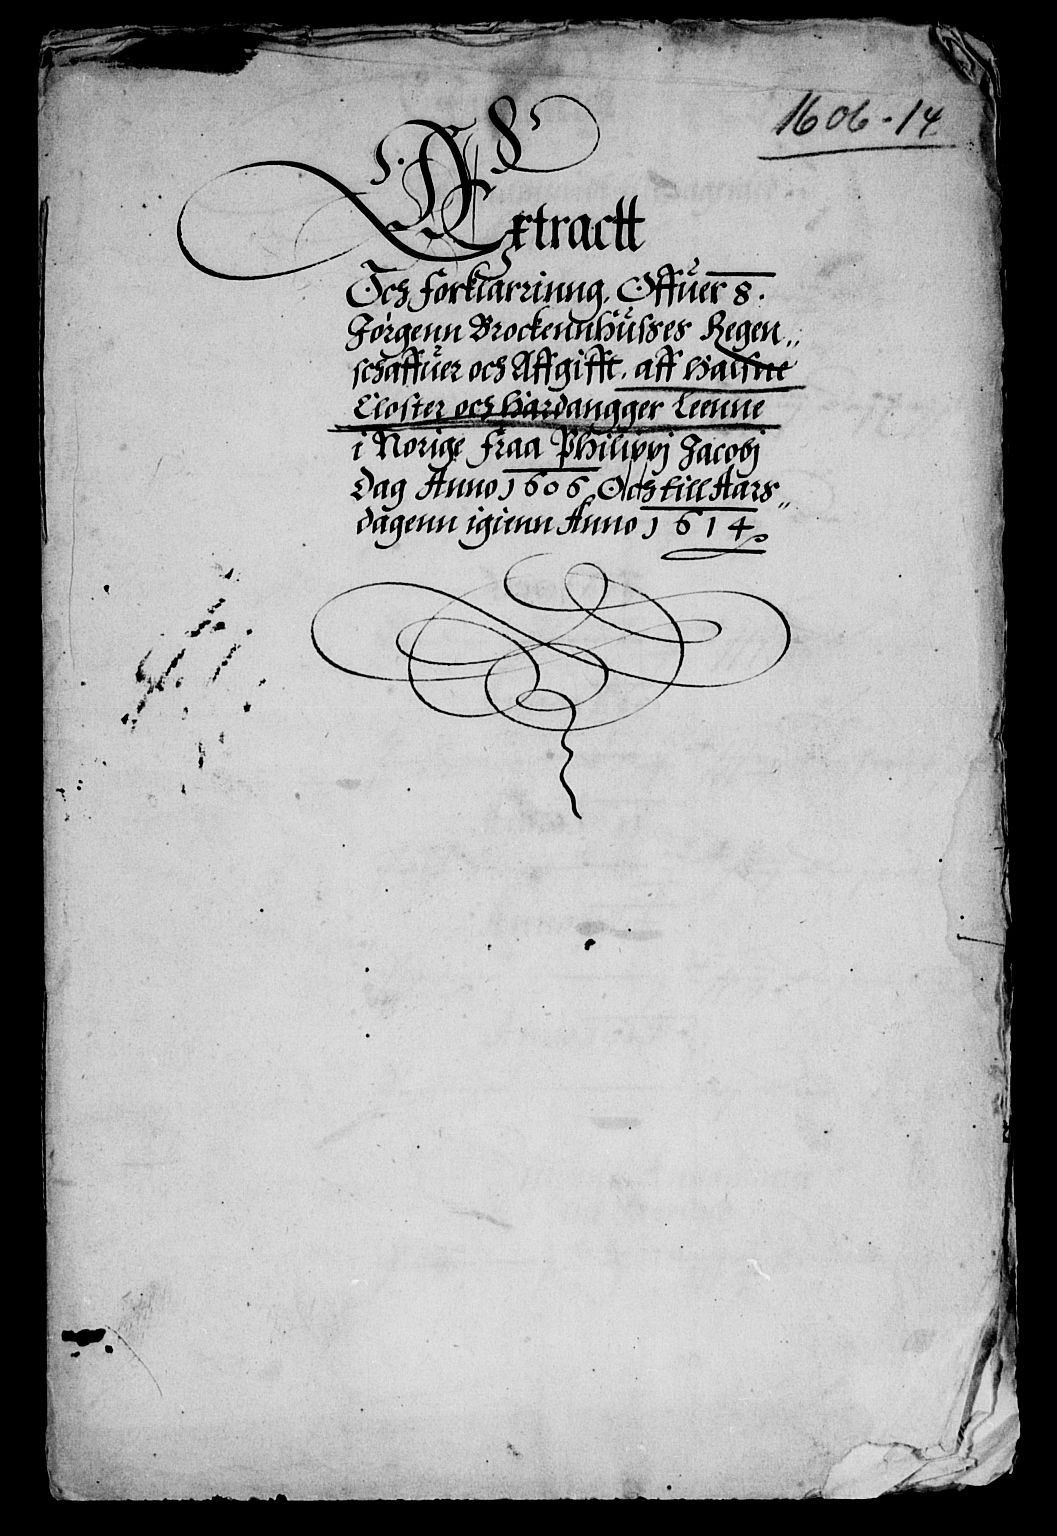 1606-14
Extractt
Och forklarrinng, Offuer S.
Jørgenn Brockennhüsses Regen„
schaffuer och Affgifft, aff Halsne
Closter och Hardangger Leenne
i Norige fraa Philippj Jacobj
Dag Anno 1606 Och till Aars„
dagenn igienn Anno 1614